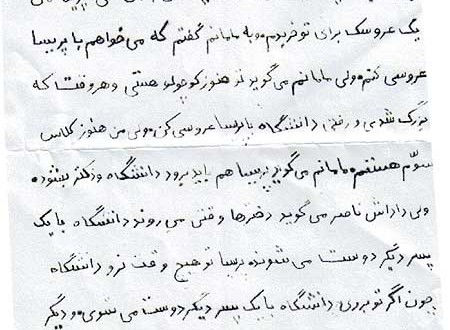 یک عروسک برای تو خریدم و به مامانم گفتم که می خواهم با پریسا
عروسی کنم ولی مامانم می گوید تو هنوز کوچولو هستی و هر وقت که
بزرگ شدی و رفتی دانشگاه با پریسا عروسی کن ولی من هنوز کلاس
سوّم هستم مامانم می گوید پریسا هم باید برود دانشگاه و دکتر بشود
ولی داداش ناصر می گوید دخترها وقتی می روند دانشگاه با یک
پسر دیگر دوست می شوند پریسا تو هیچ وقت نرو دانشگاه
چون اگر تو بروی دانشگاه با یک پسر دیگر دوست می شوی و دیگر